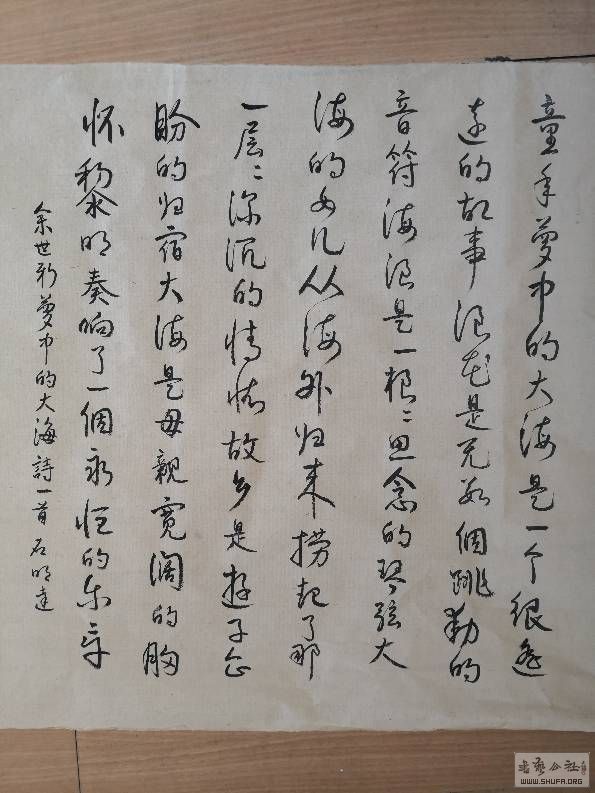 童年夢中的大海是一个很遥
远的故事浪花是无数個跳動的
音符海浪是一根〻思念的琴弦大
海的女儿从海外归来捞起了那
一层〻深沉的情怀故乡是游子企
盼的归宿大海是母親宽阔的胸
怀黎明奏响了一個永恒的乐章
余世新夢中的大海詩一首 石明達
书艺公社
WWW.SHUFA.ORG